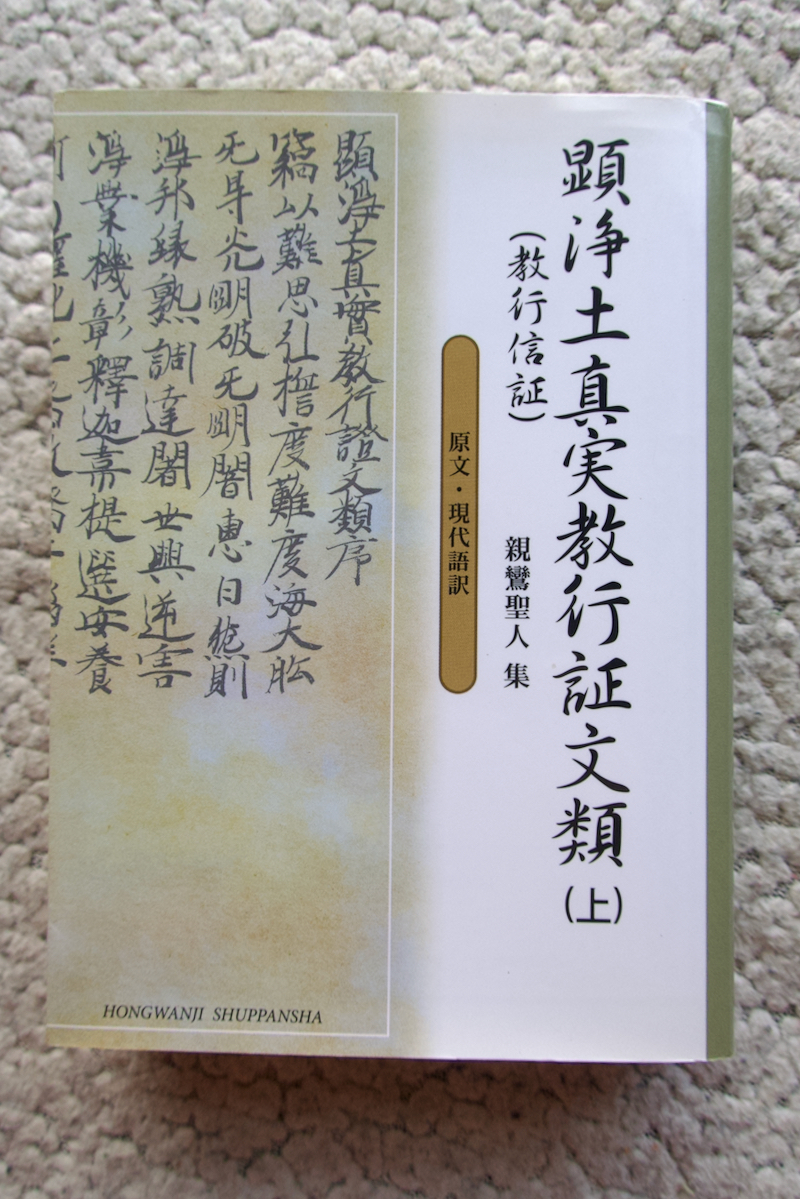 顕浄土真実教行証文類(上)
(教行信証)
親鸞聖人 集
原文・現代語訳
顯浄土真實教行證文類序
竊以難思弘擔度難度海大舩
无导光明破无明闇惠日然則
浄邦縁熟調達闍世興逆害
浄業機彰釋迦韋提選安養
HONGWANJI SHUPPANSHA